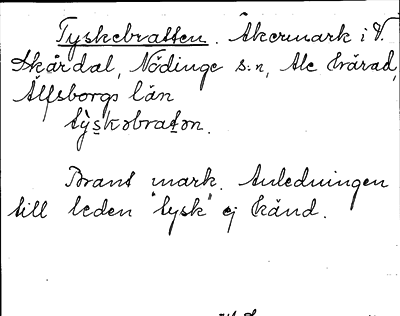 Tyskebratten. Åkermark i V.
Skårdal, Nödinge s:n, Ale härad,
Älfsborgs län
tỳskəbratən.
Brant mark. Anledningen
till leden "tysk" ej känd.